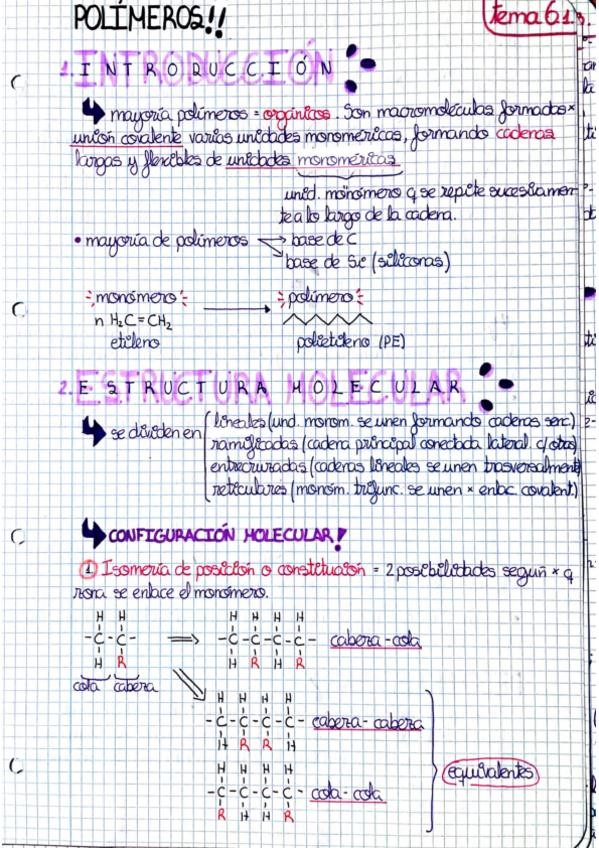 POLÍMEROS!!
Tema 6.1.
1. INTRODUCCIÓN
mayoría polímeros = orgánicos. Son macromoléculas formadas x
unión covalente varias unidades monoméricas, formando cadenas
largas y flexibles de unidades monoméricas
unid. monómero q se repite sucesivamen-
te a lo largo de la cadena.
• mayoría de polímeros → base de C
→ base de Si (siliconas)
monómero → polímero
n H₂C=CH₂
etileno
polietileno (PE)
2. ESTRUCTURA MOLECULAR
se dividen en
lineales (und. monom. se unen formando cadenas senc.)
ramificadas (cadena principal conectada lateral. c/otras)
entrecruzadas (cadenas lineales se unen trasversalment
reticulares (monóm. trifunc. se unen x enlac. covalent.)
CONFIGURACIÓN MOLECULAR!
① Isomería de posición o constitución = 2 posibilidades según x q
zona se enlace el monómero.
H H
-C-C-
H R
cola cabeza
⇒
H H H H
-C-C-C-C- cabeza-cola
H R H R
H H H H
-C-C-C-C- cabeza-cabeza
H R R H
H H H H
-C-C-C-C- cola-cola
R H H R
equivalentes